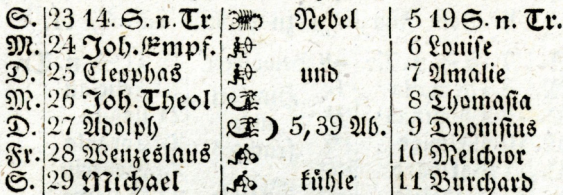 S. 23 14. S. n. Tr Nebel 5 19 S. n. Tr.
M. 24 Joh. Empf. 6 Louise
D. 25 Cleophas und 7 Amalie
M. 26 Joh. Theol 8 Thomasia
D. 27 Adolph ) 5, 39 Ab. 9 Dyonisius
Fr. 28 Wenzeslaus 10 Melchior
S. 29 Michael kühle 11 Burchard